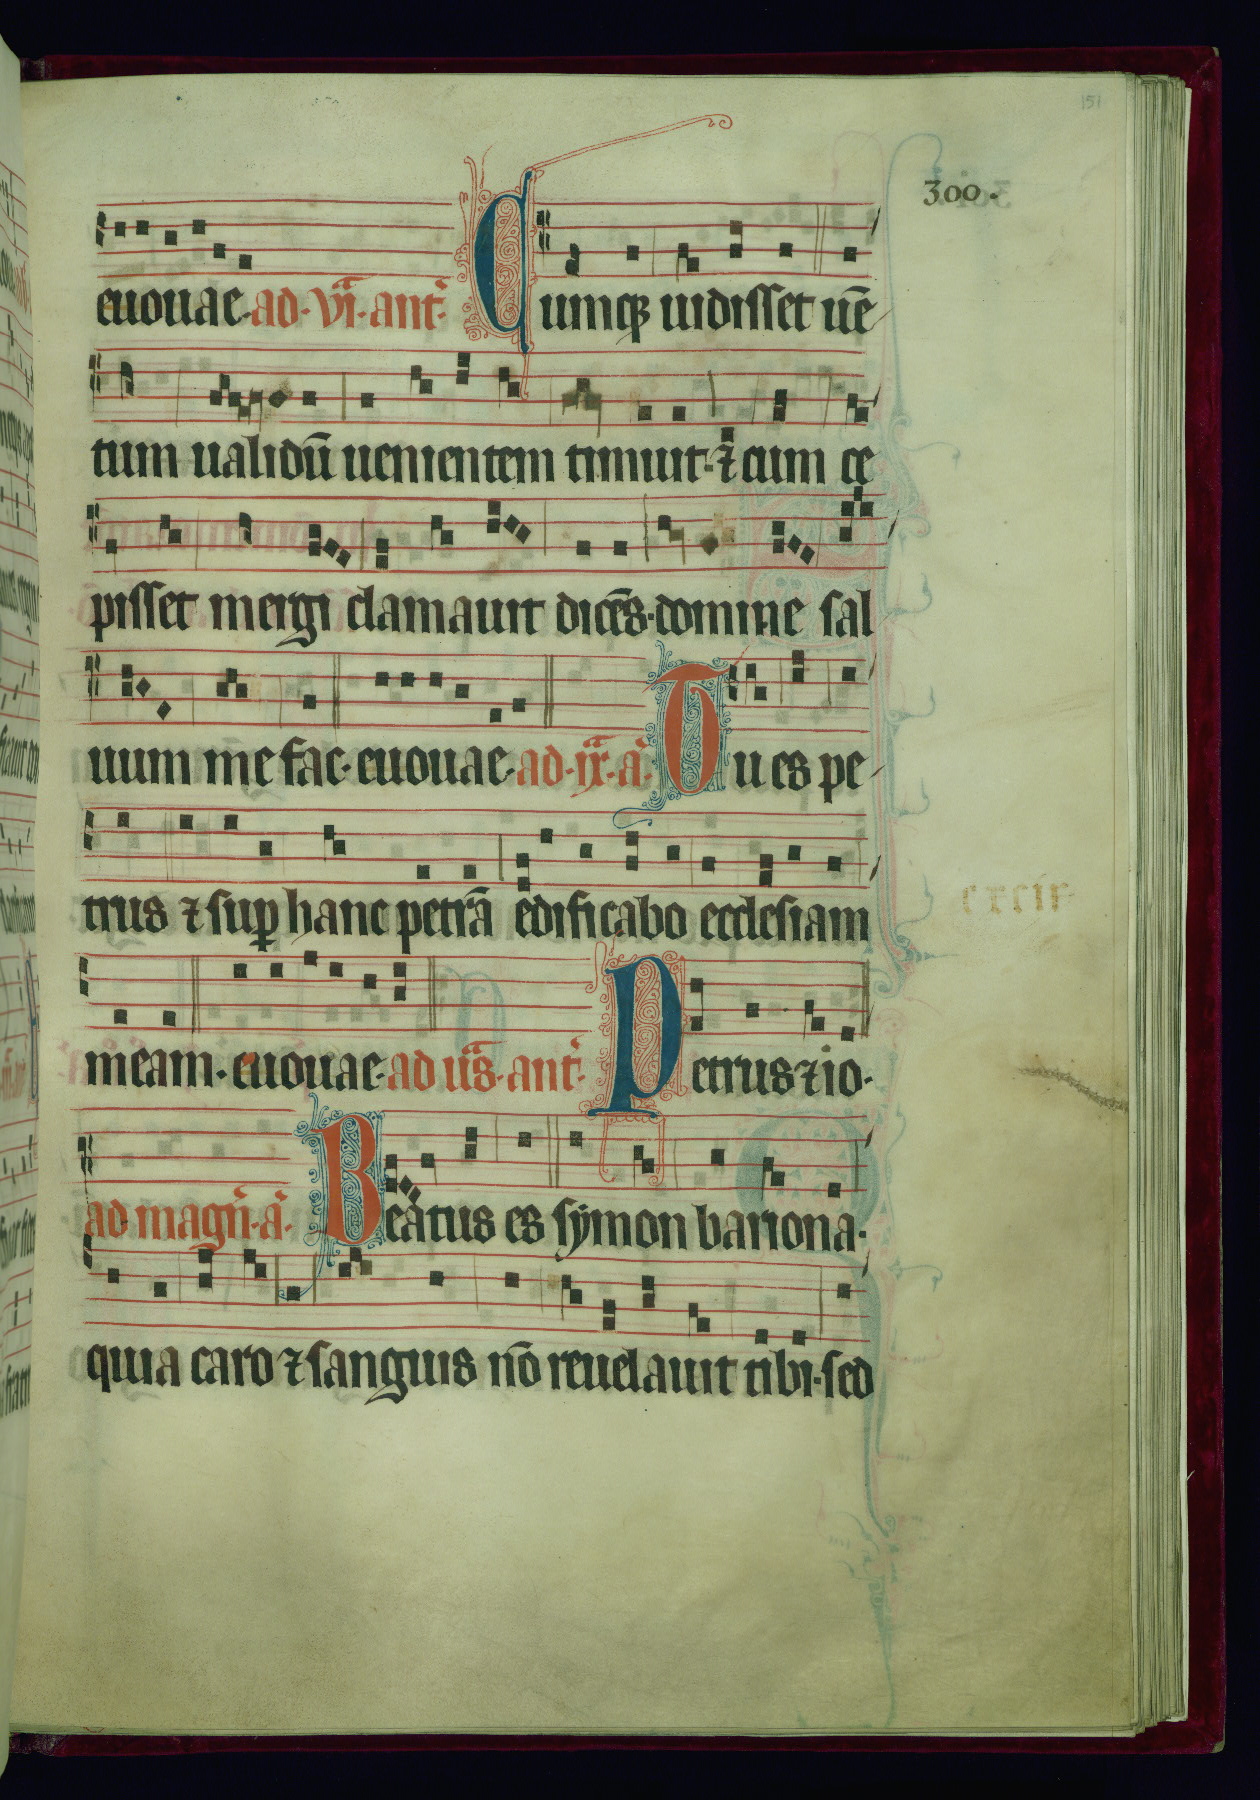 151
300.
euouae·ad·vi͞·ant͛· Cumqꝫ uidisset ue͞
tum ualidu͞ uenientem timuit·⁊ cum ce
pisset mergi clamauit dice͞s·domine sal
uum me fac·euouae·ad·ix·a͛· Tu es pe
trus ⁊ suꝑ hanc petra͞ edificabo ecclesiam
meam·euouae·ad ua͞s·ant͛· Petrus ⁊ io·
ad magn͛·a͛· Beatus es symon bariona·
quia caro ⁊ sanguis no͞ reuelauit tibi·sed